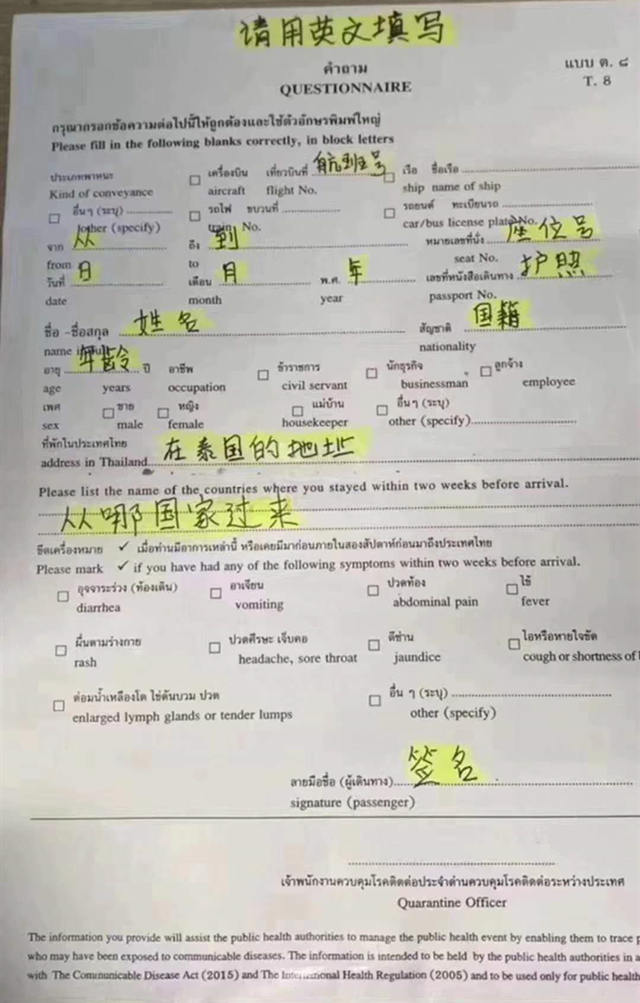 请用英文填写
คำถาม
QUESTIONNAIRE
แบบ ต. ๘
T. 8
กรุณากรอกข้อความต่อไปนี้ให้ถูกต้องและใช้ตัวอักษรพิมพ์ใหญ่
Please fill in the following blanks correctly, in block letters
ประเภทพาหนะ □ เครื่องบิน เที่ยวบินที่ 航班号 □ เรือ ชื่อเรือ
Kind of conveyance aircraft flight No. ship name of ship
□ อื่นๆ (ระบุ) □ รถไฟ ขบวนที่ □ รถยนต์ ทะเบียนรถ
other (specify) train No. car/bus license plate No.
จาก 从 ถึง 到 หมายเลขที่นั่ง 座位号
from to seat No.
วันที่ 日 เดือน 月 พ.ศ. 年 เลขที่หนังสือเดินทาง 护照
date month year passport No.
ชื่อ -ชื่อสกุล 姓名 สัญชาติ 国籍
name in full nationality
อายุ 年龄 ปี อาชีพ □ ข้าราชการ □ นักธุรกิจ □ ลูกจ้าง
age years occupation civil servant businessman employee
เพศ □ ชาย □ หญิง □ แม่บ้าน □ อื่นๆ (ระบุ)
sex male female housekeeper other (specify)
ที่พักในประเทศไทย
address in Thailand 在泰国的地址
Please list the name of the countries where you stayed within two weeks before arrival.
从哪国家过来
ขีดเครื่องหมาย ✓ เมื่อท่านมีอาการเหล่านี้ หรือเคยมีมาก่อนภายในสองสัปดาห์ก่อนมาถึงประเทศไทย
Please mark ✓ if you have had any of the following symptoms within two weeks before arrival.
□ อุจจาระร่วง (ท้องเดิน) □ อาเจียน □ ปวดท้อง □ ไข้
diarrhea vomiting abdominal pain fever
□ ผื่นตามร่างกาย □ ปวดศีรษะ เจ็บคอ □ ดีซ่าน □ ไอหรือหายใจขัด
rash headache, sore throat jaundice cough or shortness of
□ ต่อมน้ำเหลืองโต ไข่ดันบวม ปวด □ อื่น ๆ (ระบุ)
enlarged lymph glands or tender lumps other (specify)
ลายมือชื่อ (ผู้เดินทาง) 签名
signature (passenger)
เจ้าพนักงานควบคุมโรคติดต่อประจำด่านควบคุมโรคติดต่อระหว่างประเทศ
Quarantine Officer
The information you provide will assist the public health authorities to manage the public health event by enabling them to trace
who may have been exposed to communicable diseases. The information is intended to be held by the public health authorities in
with The Communicable Disease Act (2015) and The International Health Regulation (2005) and to be used only for public health